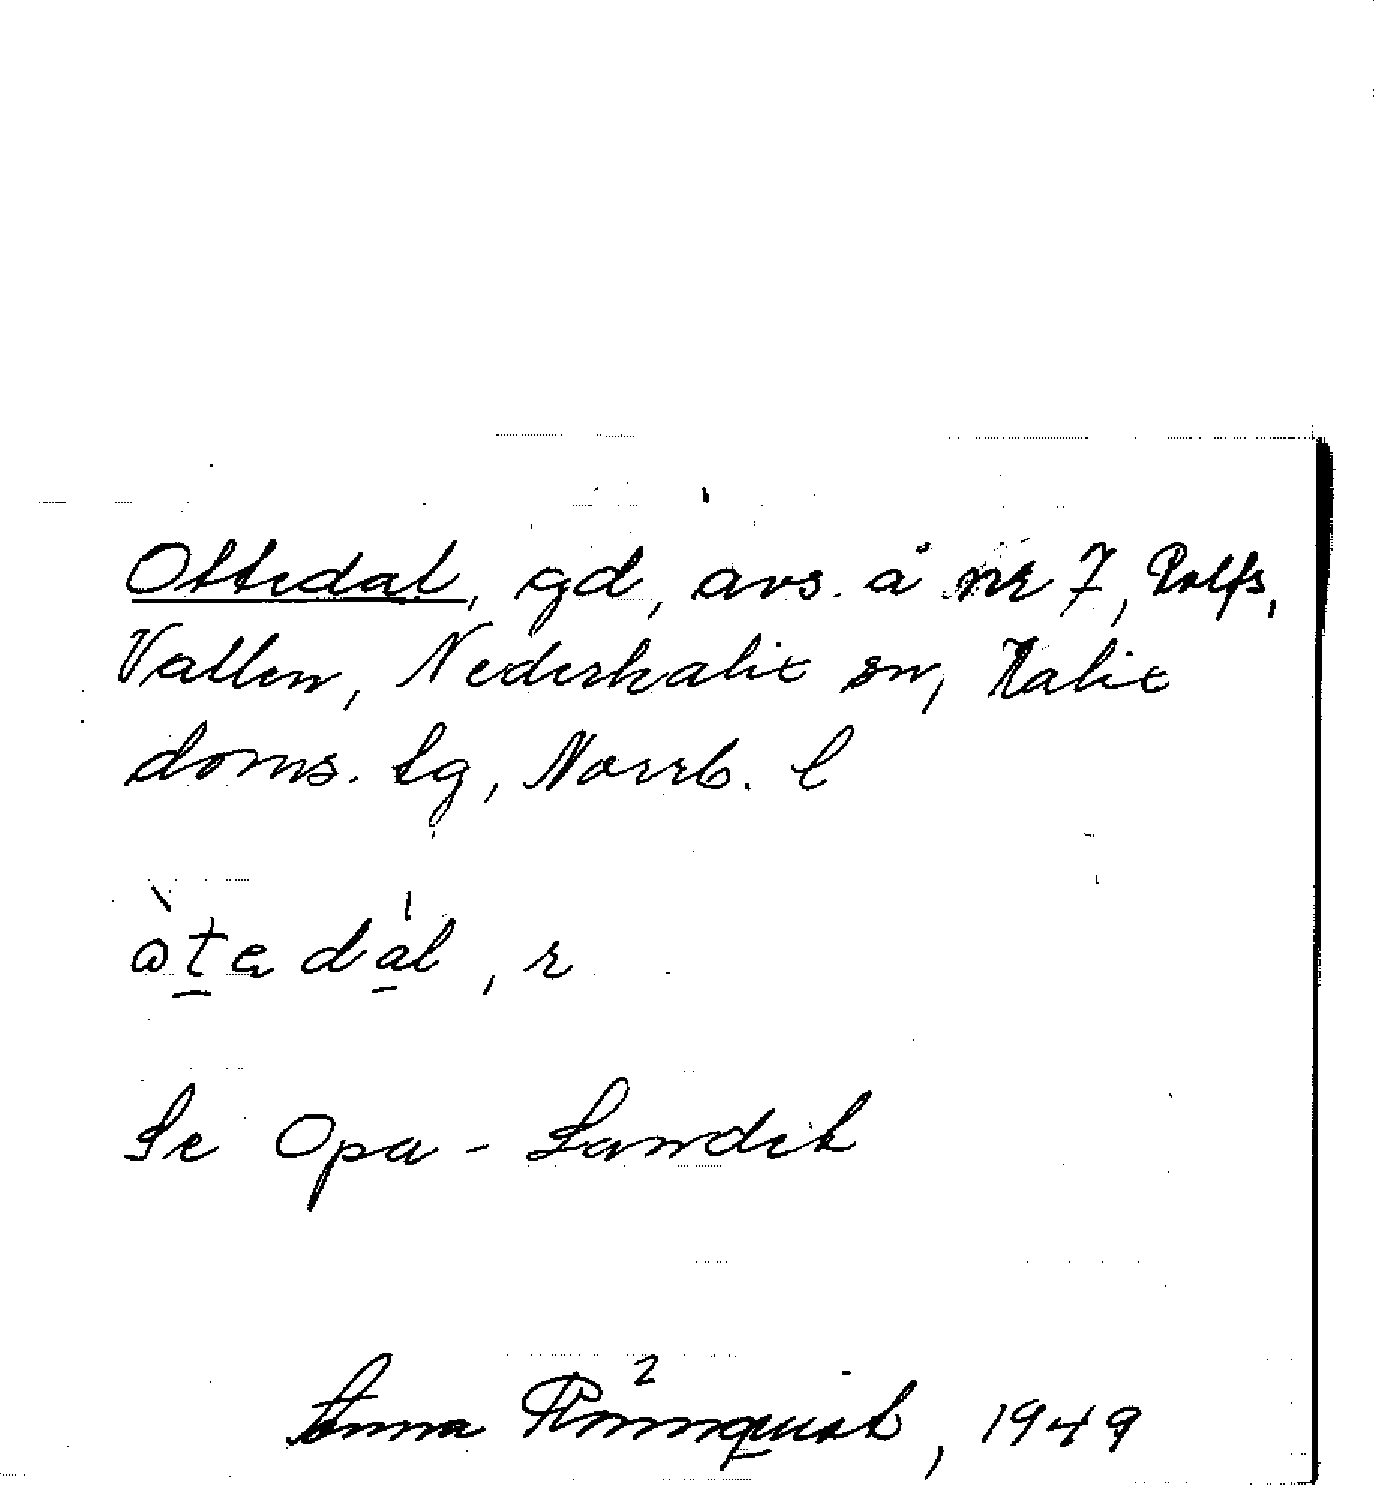 Ottedal, gd, avs. å nr 7, Rolfs,
Vallen, Nederkalix sn, Kalix
doms. lg, Norrb. l
, r
Se Opa-Landet
Anna Rönnquist, 1949